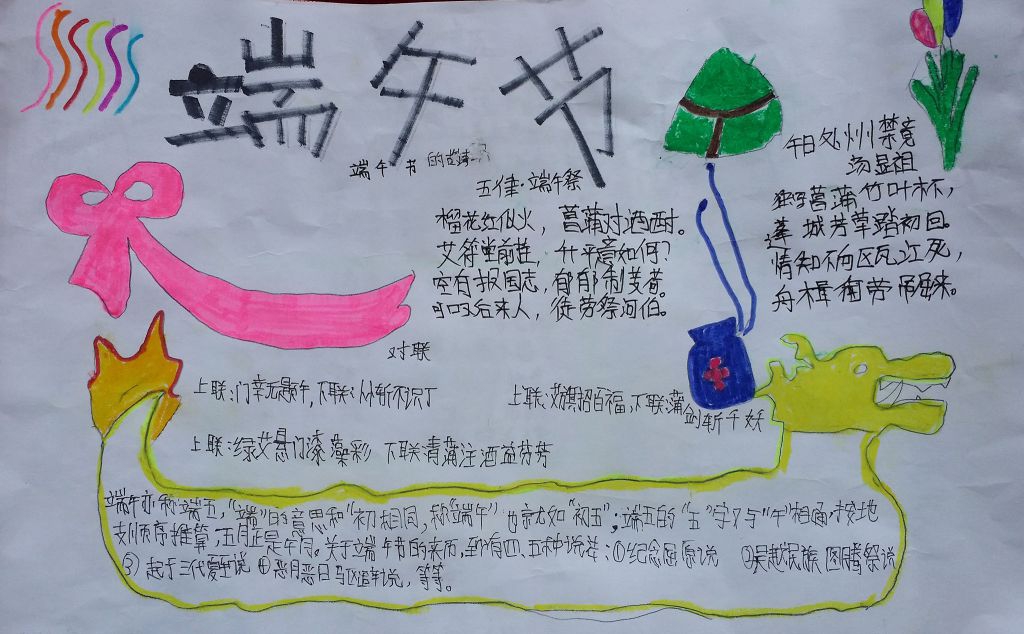 端午节
端午节的
五律·端午祭
榴花红似火，菖蒲对酒酣。
艾符堂前挂，升平意如何？
空有报国志，郁郁制芰荷。
可叹后来人，徒劳祭河伯。
午日处州禁竞
汤显祖
独写菖蒲竹叶杯，
莲城芳草踏初回。
情知不向瓯江死，
舟楫何劳吊屈来。
对联
上联：门幸无题午，下联：人斩不识丁
上联：艾旗招百福，下联：蒲
剑斩千妖
上联：绿艾悬门漆藻彩 下联青蒲注酒益芬芳
端午亦称端五，"端"的意思和"初"相同，称"端午"也就如"初五"；端五的"五"字又与"午"相通，按地
支顺序推算，五月正是午月。关于端午节的来历，到有四、五种说法：①纪念屈原说 ②吴越民族图腾祭说
③起于三代夏至说④恶月恶日驱避说，等等。